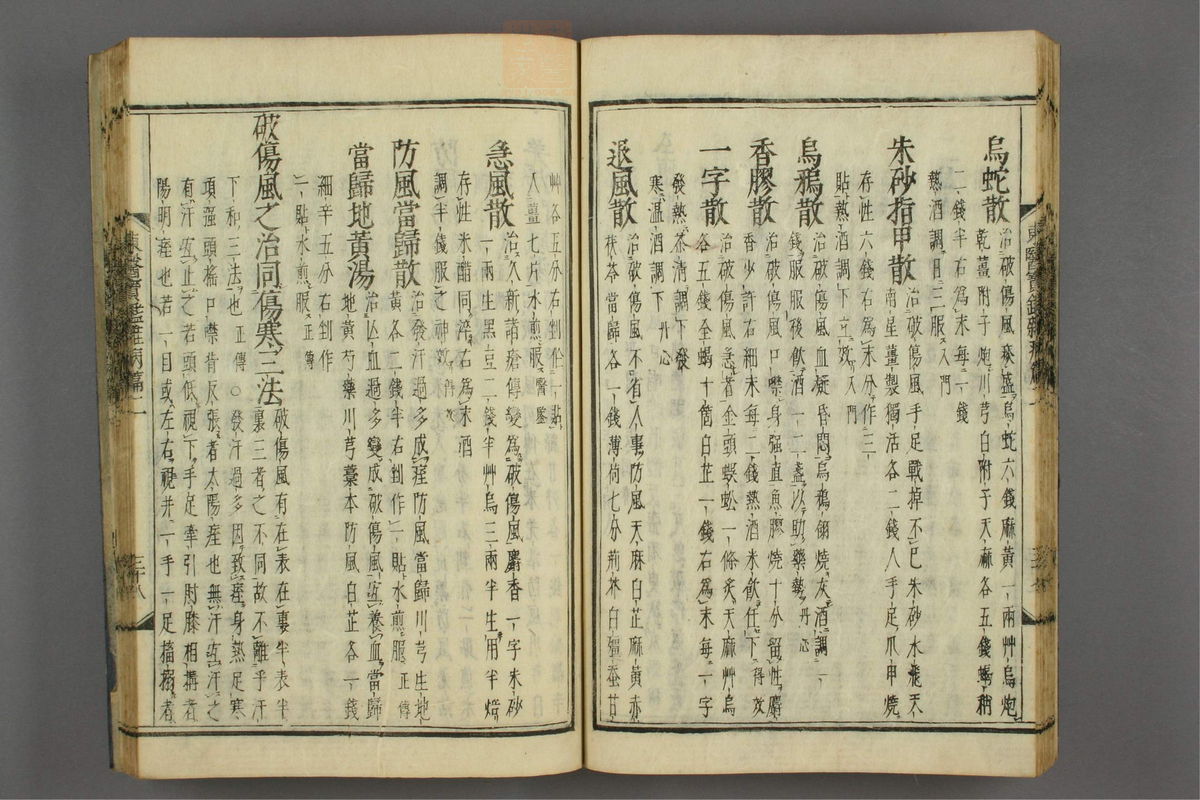 烏蛇散 治破傷風痰盛烏蛇六錢麻黃一兩艸烏炮
乾薑附子炮川芎白附子天麻各五錢蝎稍
二錢半右爲末每一錢
熱酒調日三服入門
朱砂指甲散 治破傷風手足戰掉不已朱砂水飛天
南星薑製獨活各二錢人手足爪甲燒
存性六錢右爲末分作三
貼熱酒調下立效入門
烏鴉散 治破傷風血凝昏悶烏鴉翎燒灰酒調一
錢服後飮酒一二盞以助藥勢丹心
香膠散 治破傷風口噤身强直魚膠燒十分留性麝
香少許右細末每二錢熱酒米飮任下得效
一字散 治破傷風急者金頭蜈蚣一條炙天麻艸烏
各五錢全蝎十箇白芷一錢右爲末每一字
發熱茶淸調下發
寒溫酒調下丹心
退風散 治破傷風不省人事防風天麻白芷麻黃赤
茯苓當歸各一錢薄荷七分荊芥白殭蚕甘
艸各五分右剉作一貼
入薑七片水煎服醫鑒
急風散 治久新諸瘡傳變爲破傷風麝香一字朱砂
一兩生黑豆二錢半艸烏三兩半生用半燒
存性米醋同淬右爲末酒
調半錢服之神效得效
防風當歸散 治發汗過多成痓防風當歸川芎生地
黃各二錢半右剉作一貼水煎服正傳
當歸地黃湯 治亾血過多變成破傷風宜養血當歸
地黃芍藥川芎藁本防風白芷各一錢
細辛五分右剉作
一貼水煎服正傳
破傷風之治同傷寒三法 破傷風有在表在裏半表半
裏三者之不同故不離乎汗
下和三法也正傳○發汗過多因致痓身熱足寒
項强頭搖口噤背反張者太陽痓也無汗宜汗之
有汗宜止之若頭低視下手足牽引肘膝相搆者
陽明痓也若一目或左右視并一手一足搐搦者
東醫寶鑑雜病篇
三十八